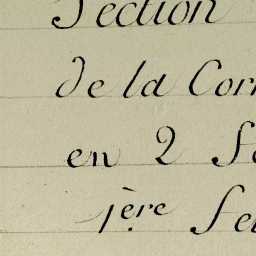 Section
de la Corr
en 2 Fe
1ère Feu